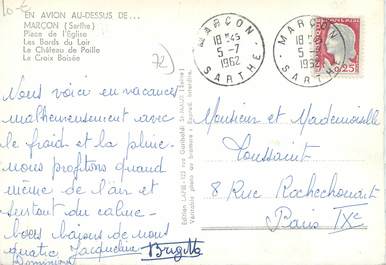 10-€
EN AVION AU-DESSUS DE...
MARÇON (Sarthe)
Place de l'Église
Les Bords du Loir
Le Château de Poille
La Croix Boisée
72
MARÇON
18H45
5-7
1962
SARTHE
MARÇON
18H45
5-7
1962
SARTHE
0,25
Nous voici en vacances
malheureusement avec
le froid et la pluie
nous profitons quand
même de l'air et
surtout du calme.
bons baisers de nous
quatre Jacqueline Brigitte
Dominique
Edition LAPIE
Véritable photo au bromure - Reprod. Interdite.
Monsieur et Mademoiselle
Toussaint
8 Rue Rochechouart
Paris IXe